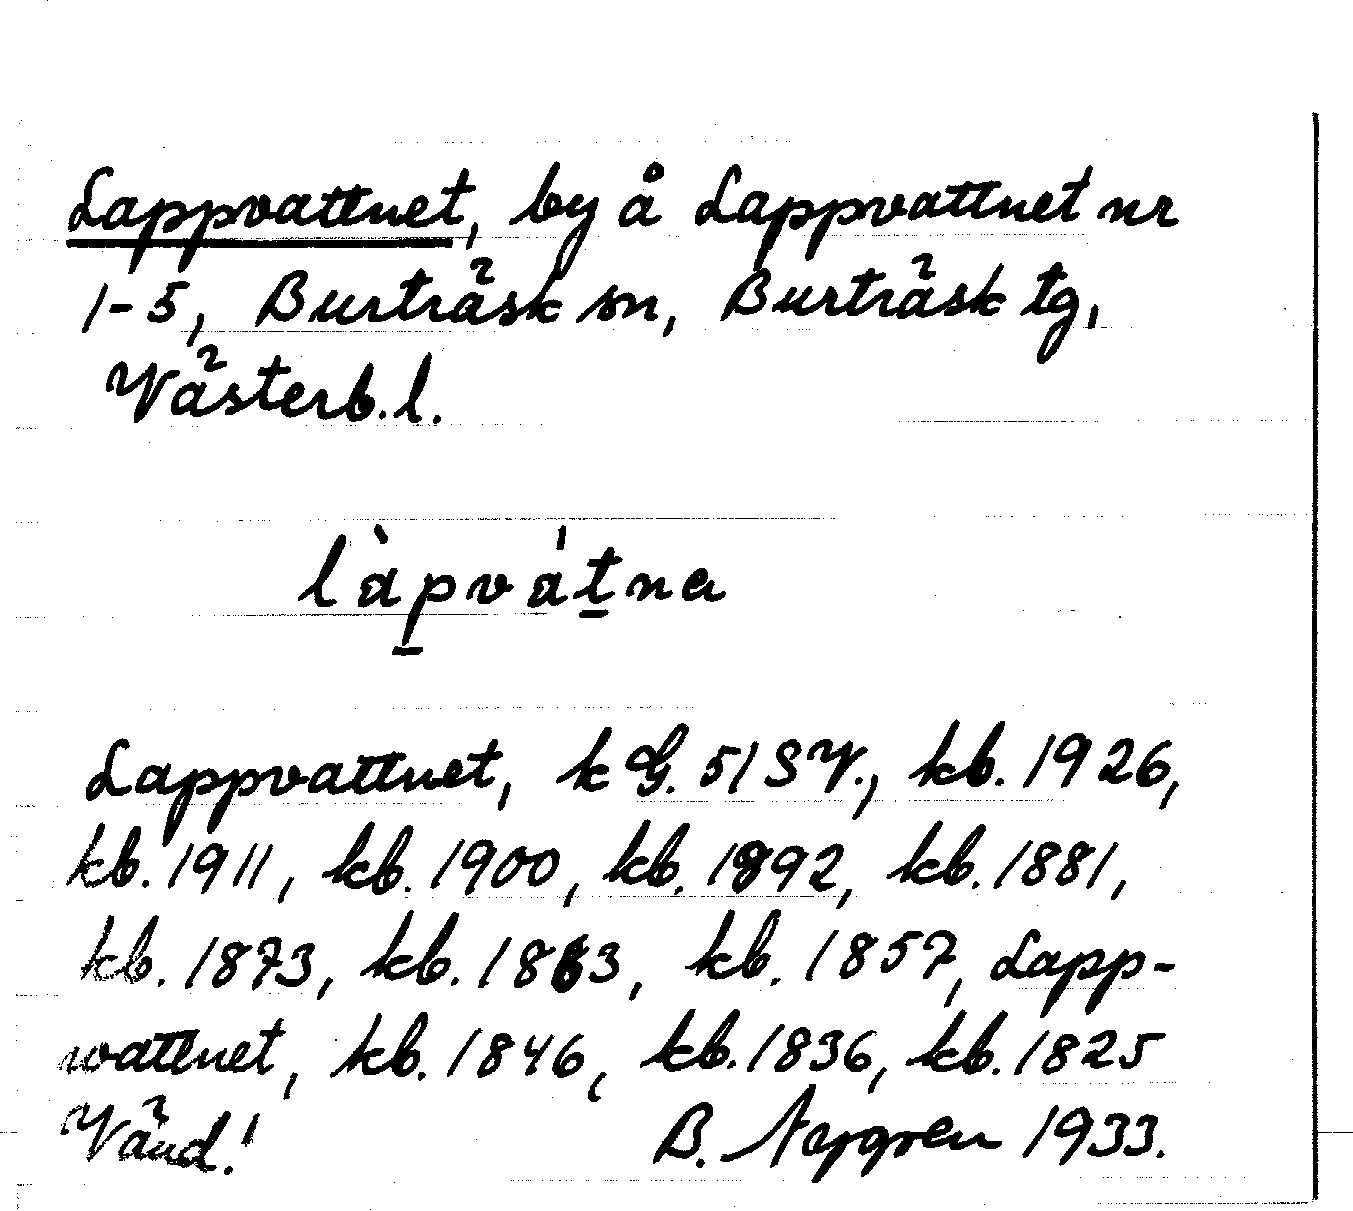 Lappvattnet, by å Lappvattnet nr
1-5, Burträsk sn, Burträsk tg,
Västerb.l.
l à p̲ v á t̲ n a
Lappvattnet, k G. 51 SV., kb. 1926,
kb. 1911, kb. 1900, kb. 1892, kb. 1881,
kb. 1873, kb. 1863, kb. 1857, Lapp-
wattnet, kb. 1846, kb. 1836, kb. 1825
Vänd! B. Nygren 1933.